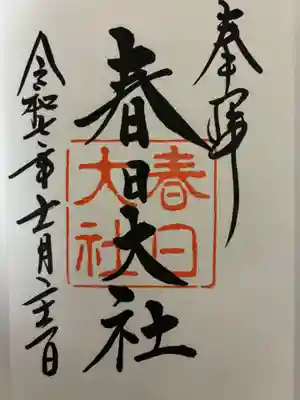 奉拝
春日大社
春日
大社
令和七年十一月二十一日